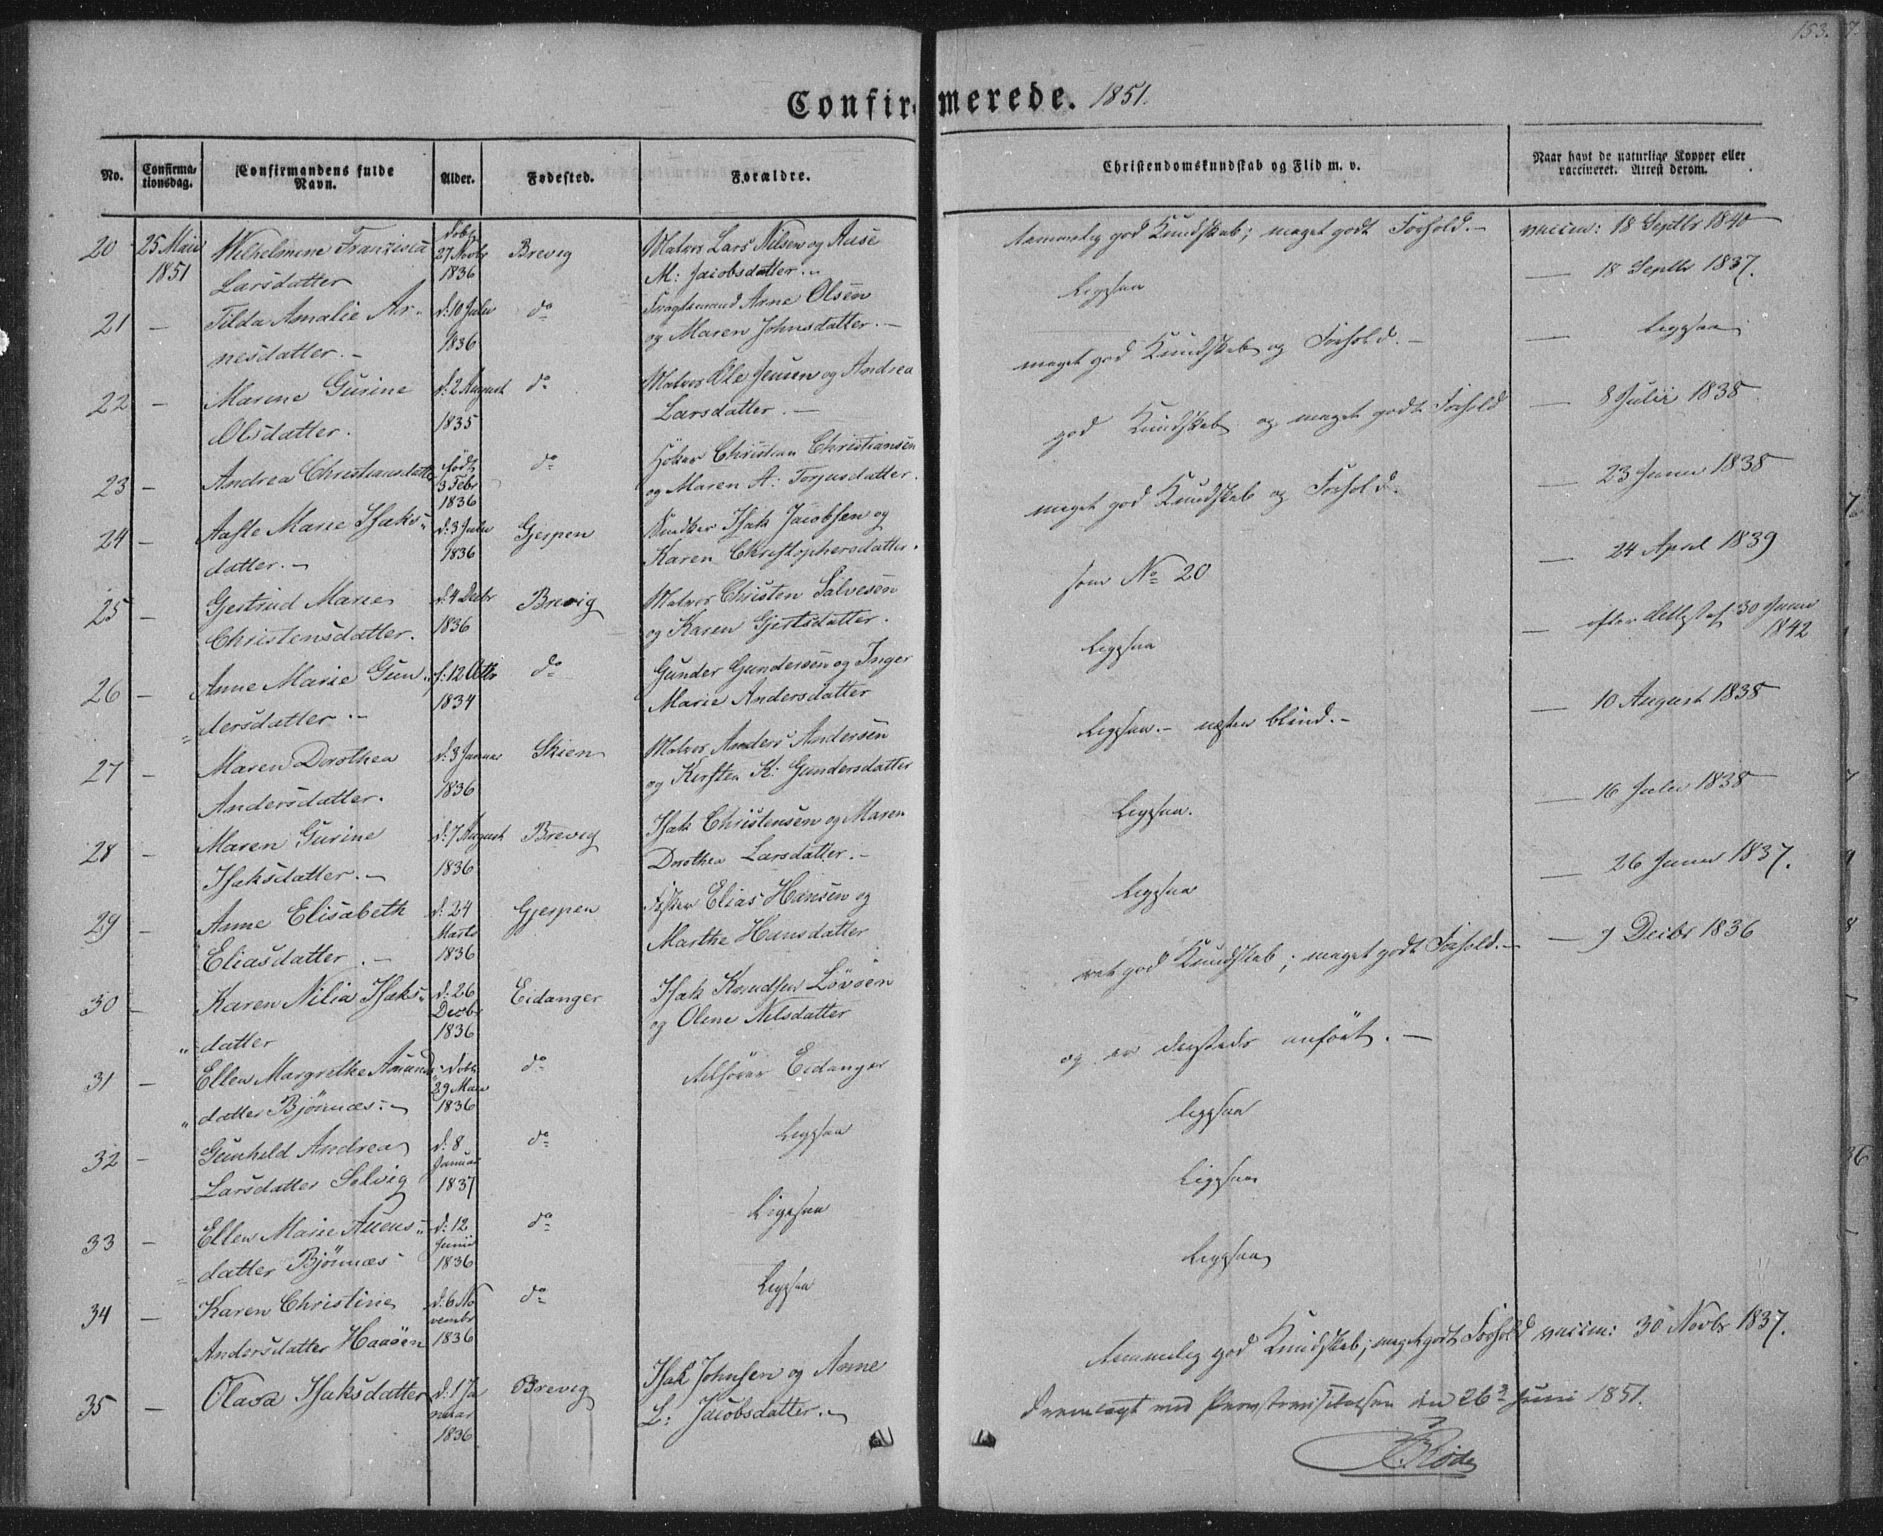 153.
Confirmerede. 1851.
No. Confirmationsdag. Confirmandens fulde Navn. Alder. Fødested. Forældre. Christendomskundskab og Flid m. v. Naar havt de naturlige Kopper eller vaccineret. Attest derom.
20 25 Maii Wilhelmine Francisca døbt 27 Novbr Brevig Matros Lars Nilsen og Anse temmelig god Kundskab; meget godt Forhold. – vaccin: 18 Septbr 1840
1851 Larsdatter 1836 M: Jacobsdatter. –
21 – Tilda Amalie Ar- d: 10 Julii do Fragtemand Arne Olsen Ligesaa – 18 Septbr 1837.
nesdatter. – 1836 og Maren Johnsdatter. –
22 – Marine Gurine d: 2 August do Matros Ole Jensen og Andrea meget god Kundskab og Forhold. – – Ligesaa
Olsdatter. 1835 Larsdatter. –
23 – Andrea Christiansdatter født 3 Febr do Høker Christian Christiansen god Kundskab og meget godt Forhold – 8 Julii 1838.
1836 og Maren A: Torjusdatter.
24 – Aaste Marie Isaks- d: 3 Julii Gjerpen Isak Jacobsen og meget god Kundskab og Forhold. – 23 Junii 1838
datter. – 1836 Karen Christophersdatter.
25 – Gjertrud Marie d: 4 Decbr Brevig Matros Christen Salvesen som No 20 – 24 April 1839
Christensdatter. 1836 og Karen Gjertsdatter.
26 – Anne Marie Gun- f: 12 Octbr do Gunder Gundersen og Inger Ligesaa – efter Attest af 30 Junii
dersdatter. – 1834 Marie Andersdatter 1842
27 – Maren Dorothea d: 3 Januar Skien Matros Anders Andersen Ligesaa. – næsten blind. – – 10 August 1838
Andersdatter. 1836 og Kirsten K: Gundersdatter
28 – Maren Gurine d: 7 August Brevig Isak Christensen og Maren Ligesaa. – 16 Julii 1838
Isaksdatter. – 1836 Dorothea Larsdatter. –
29 – Anne Elisabeth d: 24 Gjerpen Elias Hansen og Ligesaa – 26 Junii 1837.
Eliasdatter. – Marts 1836 Marthe Hansdatter
30 – Karen Nilia Isaks- d: 26 Eidanger Isak Knudsen Løvøen ret god Kundskab; meget godt Forhold. – – 9 Decbr 1836
datter Decbr 1836 og Olene Nilsdatter
31 – Ellen Margrethe Amunds- døbt do tilhører Eidanger og er dersteds anført. –
datter Bjönnæs. – 29 Maii 1836
32 – Gunhild Andrea d: 8 do Ligesaa ligesaa
Larsdatter Selvig Januar 1837
33 – Ellen Marie Auens- d: 12 do Ligesaa Ligesaa
datter Bjönnæs Junii 1836
34 – Karen Christine d: 6 No- do Ligesaa Ligesaa
Andersdatter Haaøen vembr 1836
35 – Olava Isaksdatter d: 1 Ja- Brevig Isak Johnsen og Anne temmelig god Kundskab; meget godt Forhold vaccin: 30 Novbr 1837.
nuar 1836 L: Jacobsdatter. –
Fremlagt ved Provstevisitatsen den 26de Juni 1851.
Rode